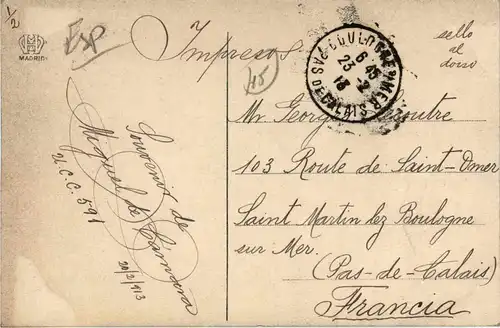 1/2
Esp
MADRID
Impresos
15
sello
al
dorso
BOULOGNE S MER
6 45
23 - 2
13
PAS DE CALAIS
Mr Georges Lecoutre
103 Route de Saint-Omer
Saint Martin lez Boulogne
sur Mer.
(Pas-de-Calais)
Francia
Souvenir de
Miguel de
U.C.C. 591
20/2/913